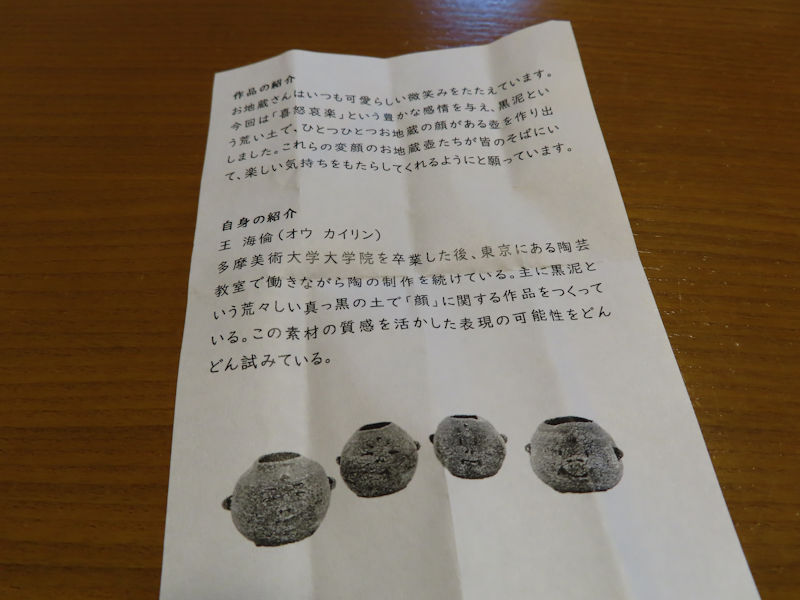 作品の紹介
お地蔵さんはいつも可愛らしい微笑みをたたえています。
今回は「喜怒哀楽」という豊かな感情を与え、黒泥とい
う荒い土で、ひとつひとつお地蔵の顔がある壺を作り出
しました。これらの変顔のお地蔵壺たちが皆のそばにい
て、楽しい気持ちをもたらしてくれるようにと願っています。
自身の紹介
王 海倫（オウ カイリン）
多摩美術大学大学院を卒業した後、東京にある陶芸
教室で働きながら陶の制作を続けている。主に黒泥と
いう荒々しい真っ黒の土で「顔」に関する作品をつくって
いる。この素材の質感を活かした表現の可能性をどん
どん試みている。